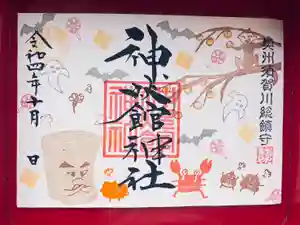 奥州須賀川総鎮守
神炊館神社
令和四年十月 日